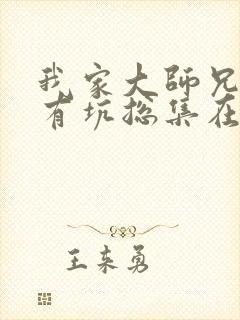 我家大師兄
有坑總集在
王来勇